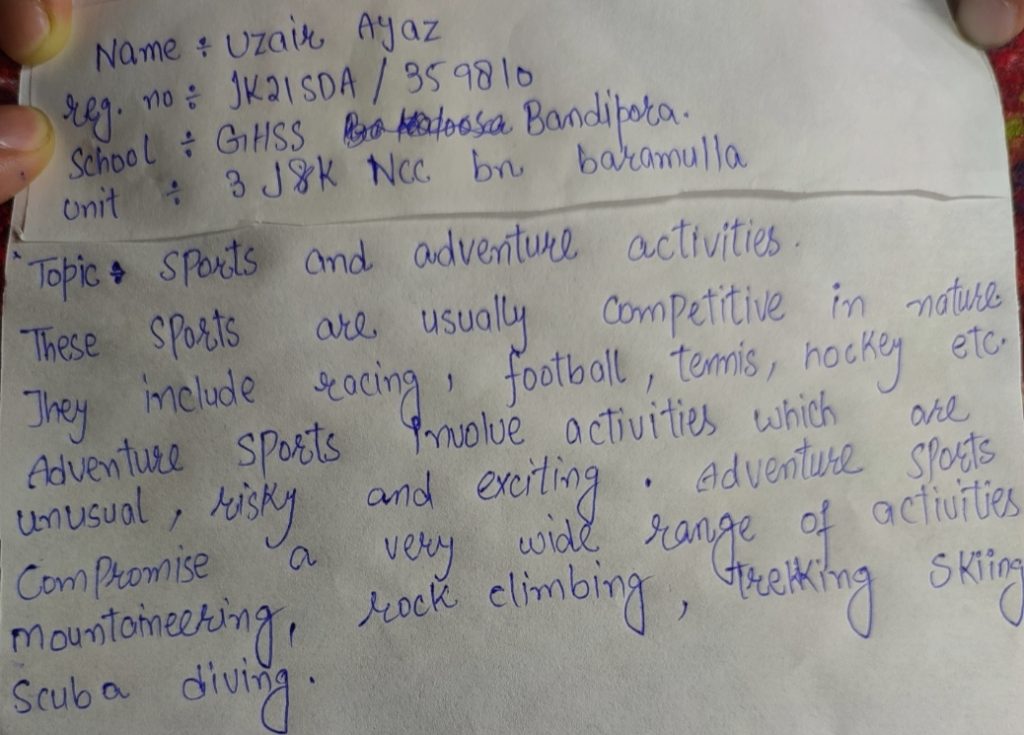 Name ÷ Uzair Ayaz
reg. no ÷ JK21SDA / 359810
School ÷ GHSS Bandipora.
unit ÷ 3 J&K NCC bn baramulla
Topic : sports and adventure activities.
These sports are usually competitive in nature.
They include racing, football, tennis, hockey etc.
Adventure sports Involve activities which are
unusual, risky and exciting. Adventure sports
Compromise a very wide range of activities
mountaineering, rock climbing, trekking skiing
Scuba diving.